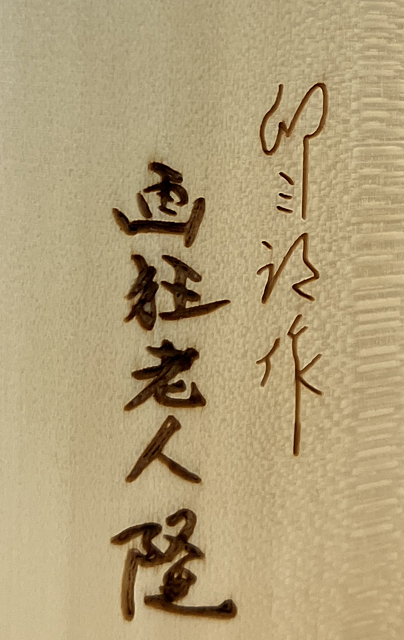 卯三郎作
画狂老人隆